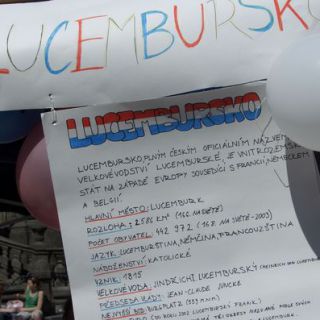 LUCEMBURSKO
LUCEMBURSKO
LUCEMBURSKO, PLNÝM ČESKÝM OFICIÁLNÍM NÁZVEM
VELKOVÉVODSTVÍ LUCEMBURSKÉ, JE VNITROZEMSKÝ
STÁT NA ZÁPADĚ EVROPY SOUSEDÍCÍ S FRANCIÍ, NĚMECKEM
A BELGIÍ.
HLAVNÍ MĚSTO: LUCEMBURK
ROZLOHA: 2586 KM² (162. NA SVĚTĚ)
POČET OBYVATEL: 442 972 (162. NA SVĚTĚ - 2003)
JAZYK: LUCEMBURŠTINA, NĚMČINA, FRANCOUZŠTINA
NÁBOŽENSTVÍ: KATOLICKÉ
VZNIK: 1815
VELKOVÉVODA: JINDŘICH I LUCEMBURSKÝ
PŘEDSEDA VLÁDY: JEAN-CLAUDE JUNCKE
NEJVYŠŠÍ BOD: BUZGPLATZ (559 M N.M.)
(DO ROKU 2002 LUCEMBURSKÝ FRANK)